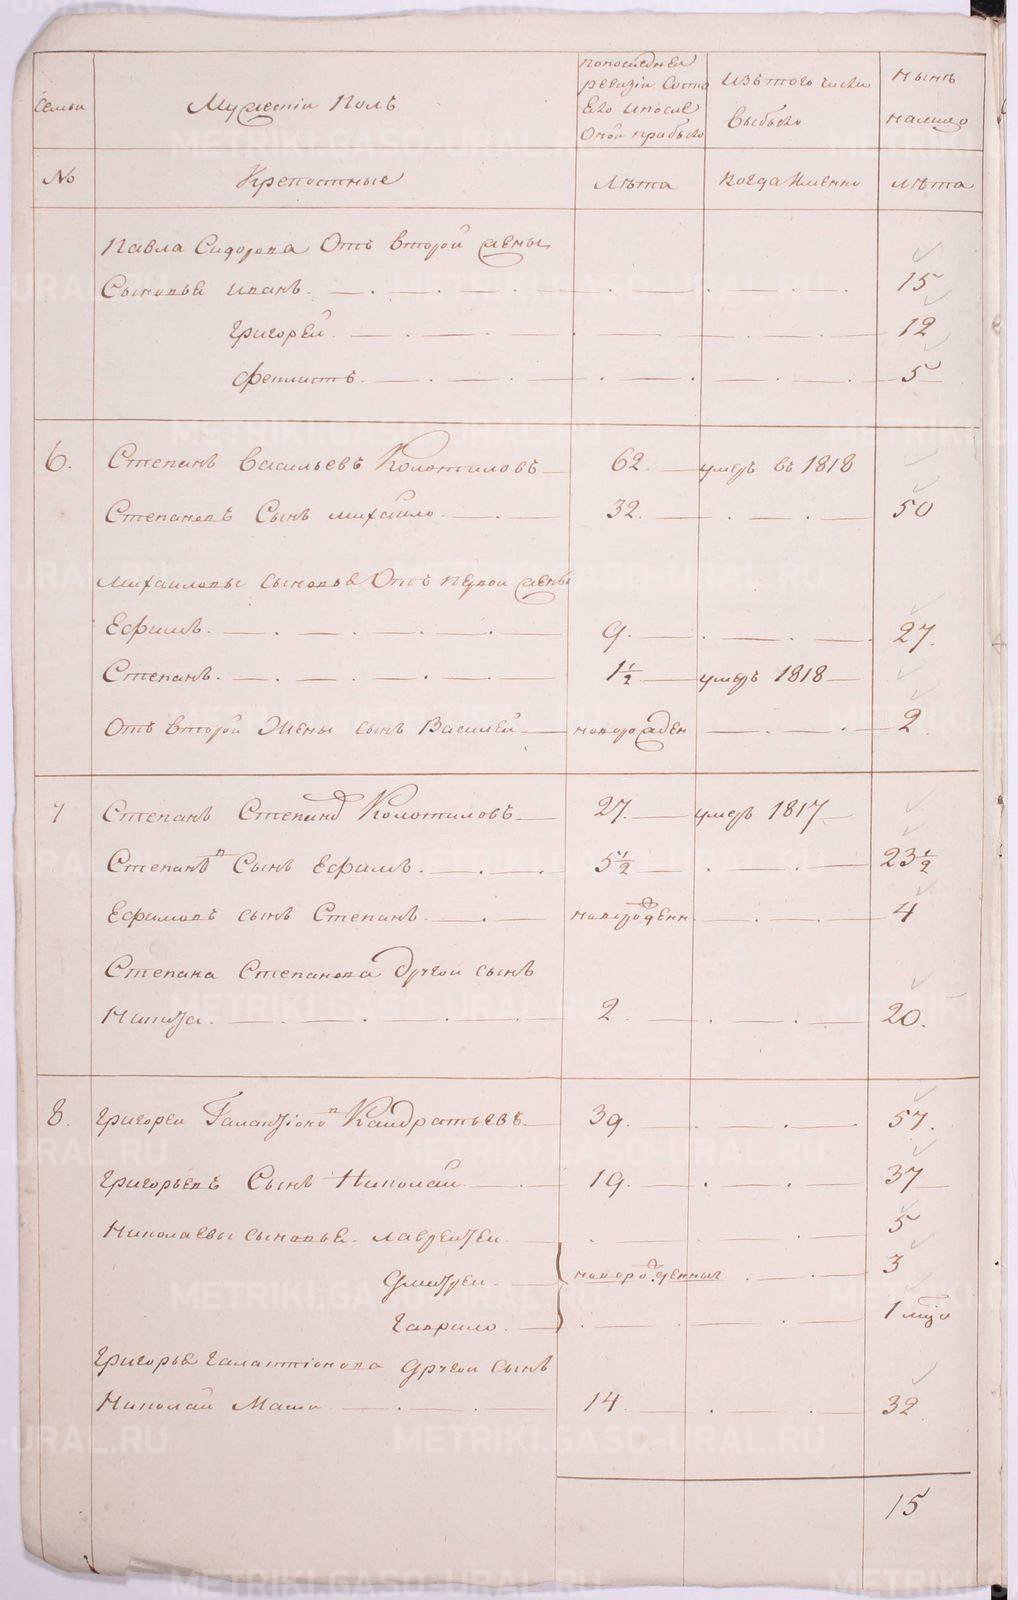 Семьи
Мужескiй Полъ
попоследней
ревизiи Состо
Яло ипосле
Оной прибыло
Изътого числа
Выбыло
Нынѣ
налицо
No
Крепостные
Лѣта
Когда Именно
лѣта
Павла Сидорова Отъ второй жены
Сыновья иванъ. 15
григорей 12
Феклистъ. 5
6. Степанъ Васильевъ Колотиловъ 62. умеръ въ 1818
Степановъ Сынъ михайло 32. 50
Михаиловы сыновья Отъ первои жены
Ефимъ. 9. 27.
Степанъ. 1 1/2 умеръ 1818
Отъ второй жены сынъ Василей новорожден 2.
7 Степанъ Степанов Колотиловъ 27. умеръ 1817
Степановъ Сынъ Ефимъ. 5 1/2 23 1/2
Ефимовъ сынъ Степанъ новорожденн 4
Степана Степанова другои сынъ
Никита. 2 20.
8. григореи Галактiоновъ Кандратьевъ 39. 57.
григорьевъ Сынъ Николай 19. 37
Николаевы сыновья. лаврентеи 5
дмитреи новорожденныи 3
гаврило. 1 мцо
григорья галактiонова другои сынъ
Николай Меньшо 14 32
15
METRIKI.GASO-URAL.RU